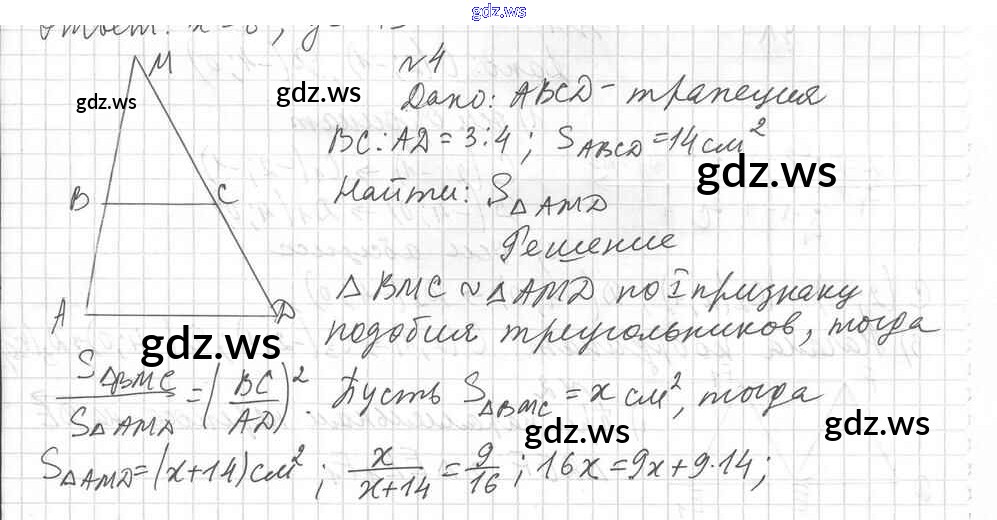 gdz.ws
Ответ: x=
M
№4
gdz.ws
gdz.ws
Дано: ABCD - трапеция
BC:AD=3:4; S_ABCD=14 см²
gdz.ws
B
C
Найти: S_ΔAMD
Решение
ΔBMC ~ ΔAMD по I признаку
A
D
подобия треугольников, тогда
gdz.ws
S_ΔBMC / S_ΔAMD = (BC/AD)². Пусть S_ΔBMC = x см², тогда
gdz.ws
gdz.ws
S_ΔAMD = (x+14) см²; x/(x+14) = 9/16; 16x=9x+9·14;